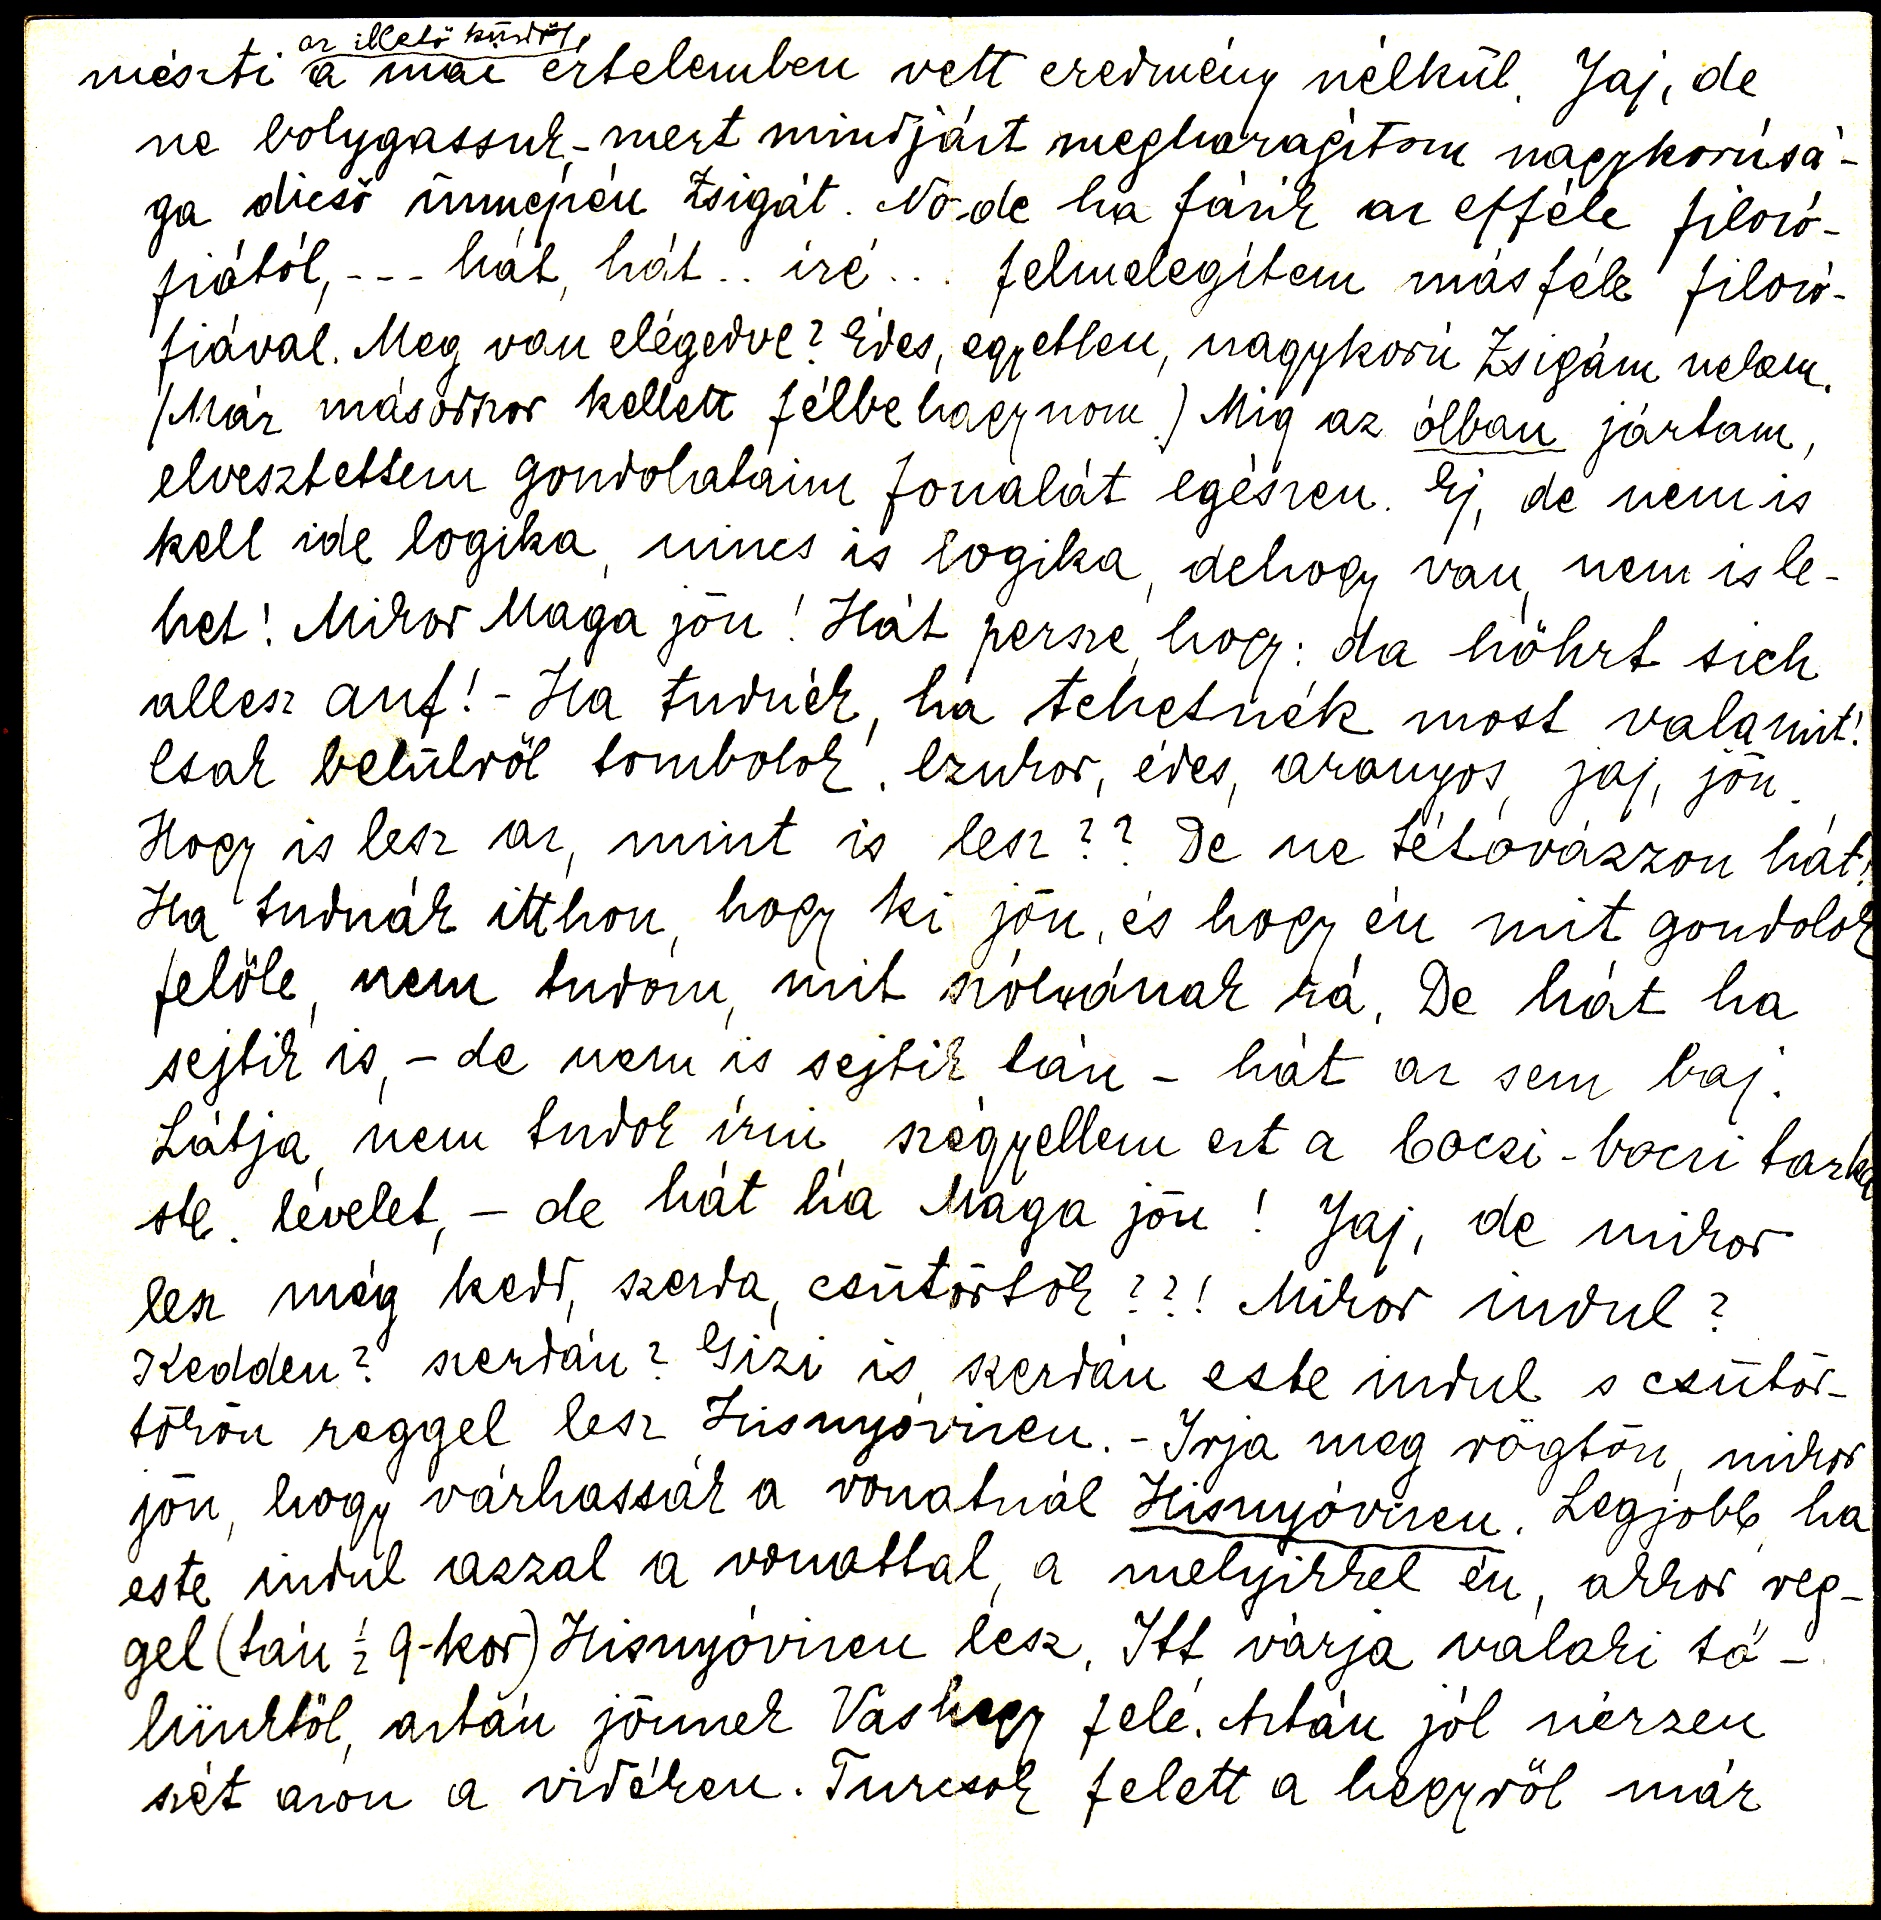 az illető küzdőt,
mészti a mai értelemben vett eredmény nélkül. Jaj, de
ne bolygassuk,- mert mindjárt megharagítom nagykorúsá-
ga dicső ünnepén Zsigát. No de ha fázik az efféle filozó-
fiától, --- hát, hát.. izé... felmelegítem másféle filozó-
fiával. Meg van elégedve? Édes, egyetlen, nagykorú Zsigám nekem.
(Már másodszor kellett félbehagynom.) Mig az ólban jártam,
elvesztettem gondolataim fonalát egészen. Ej, de nem is
kell ide logika, nincs is logika, dehogy van, nem is le-
het! Mikor Maga jön! Hát persze, hogy: da höhrt sich
allesz auf! - Ha tudnék, ha tehetnék most valamit!
Csak belülről tombolok. Czukor, édes, aranyos, jaj, jön.
Hogy is lesz az, mint is lesz?? De ne tétovázzon hát!
Ha tudnák itthon, hogy ki jön, és hogy én mit gondolok
felőle, nem tudom, mit szólnának rá. De hát ha
sejtik is, - de nem is sejtik tán - hát az sem baj.
Látja, nem tudok írni, szégyellem ezt a boczi-boczi tarka
stb. levelet, - de hát ha Maga jön! Jaj, de mikor
lesz még kedd, szerda, csütörtök??! Mikor indul?
Kedden? szerdán? Gizi is szerdán este indul s csütör-
tökön reggel lesz Hisnyóvizen. - Irja meg rögtön, mikor
jön, hogy várhassák a vonatnál Hisnyóvizen. Legjobb, ha
este indul azzal a vonattal, a melyikkel én, akkor reg-
gel (tán ½ 9-kor) Hisnyóvizen lesz. Itt várja valaki tő-
lünktől, aztán jönnek Vashegy felé. Aztán jól nézzen
szét azon a vidéken. Turcsok felett a hegyről már